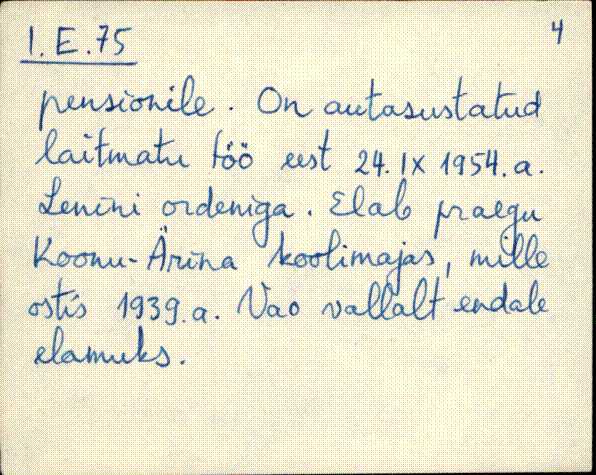 I.E.75 4
pensionile. On autasustatud
laitmatu töö eest 24.IX 1954.a.
Lenini ordeniga. Elab praegu
Koonu-Ärina koolimajas, mille
ostis 1939.a. Vao vallalt endale
elamuks.